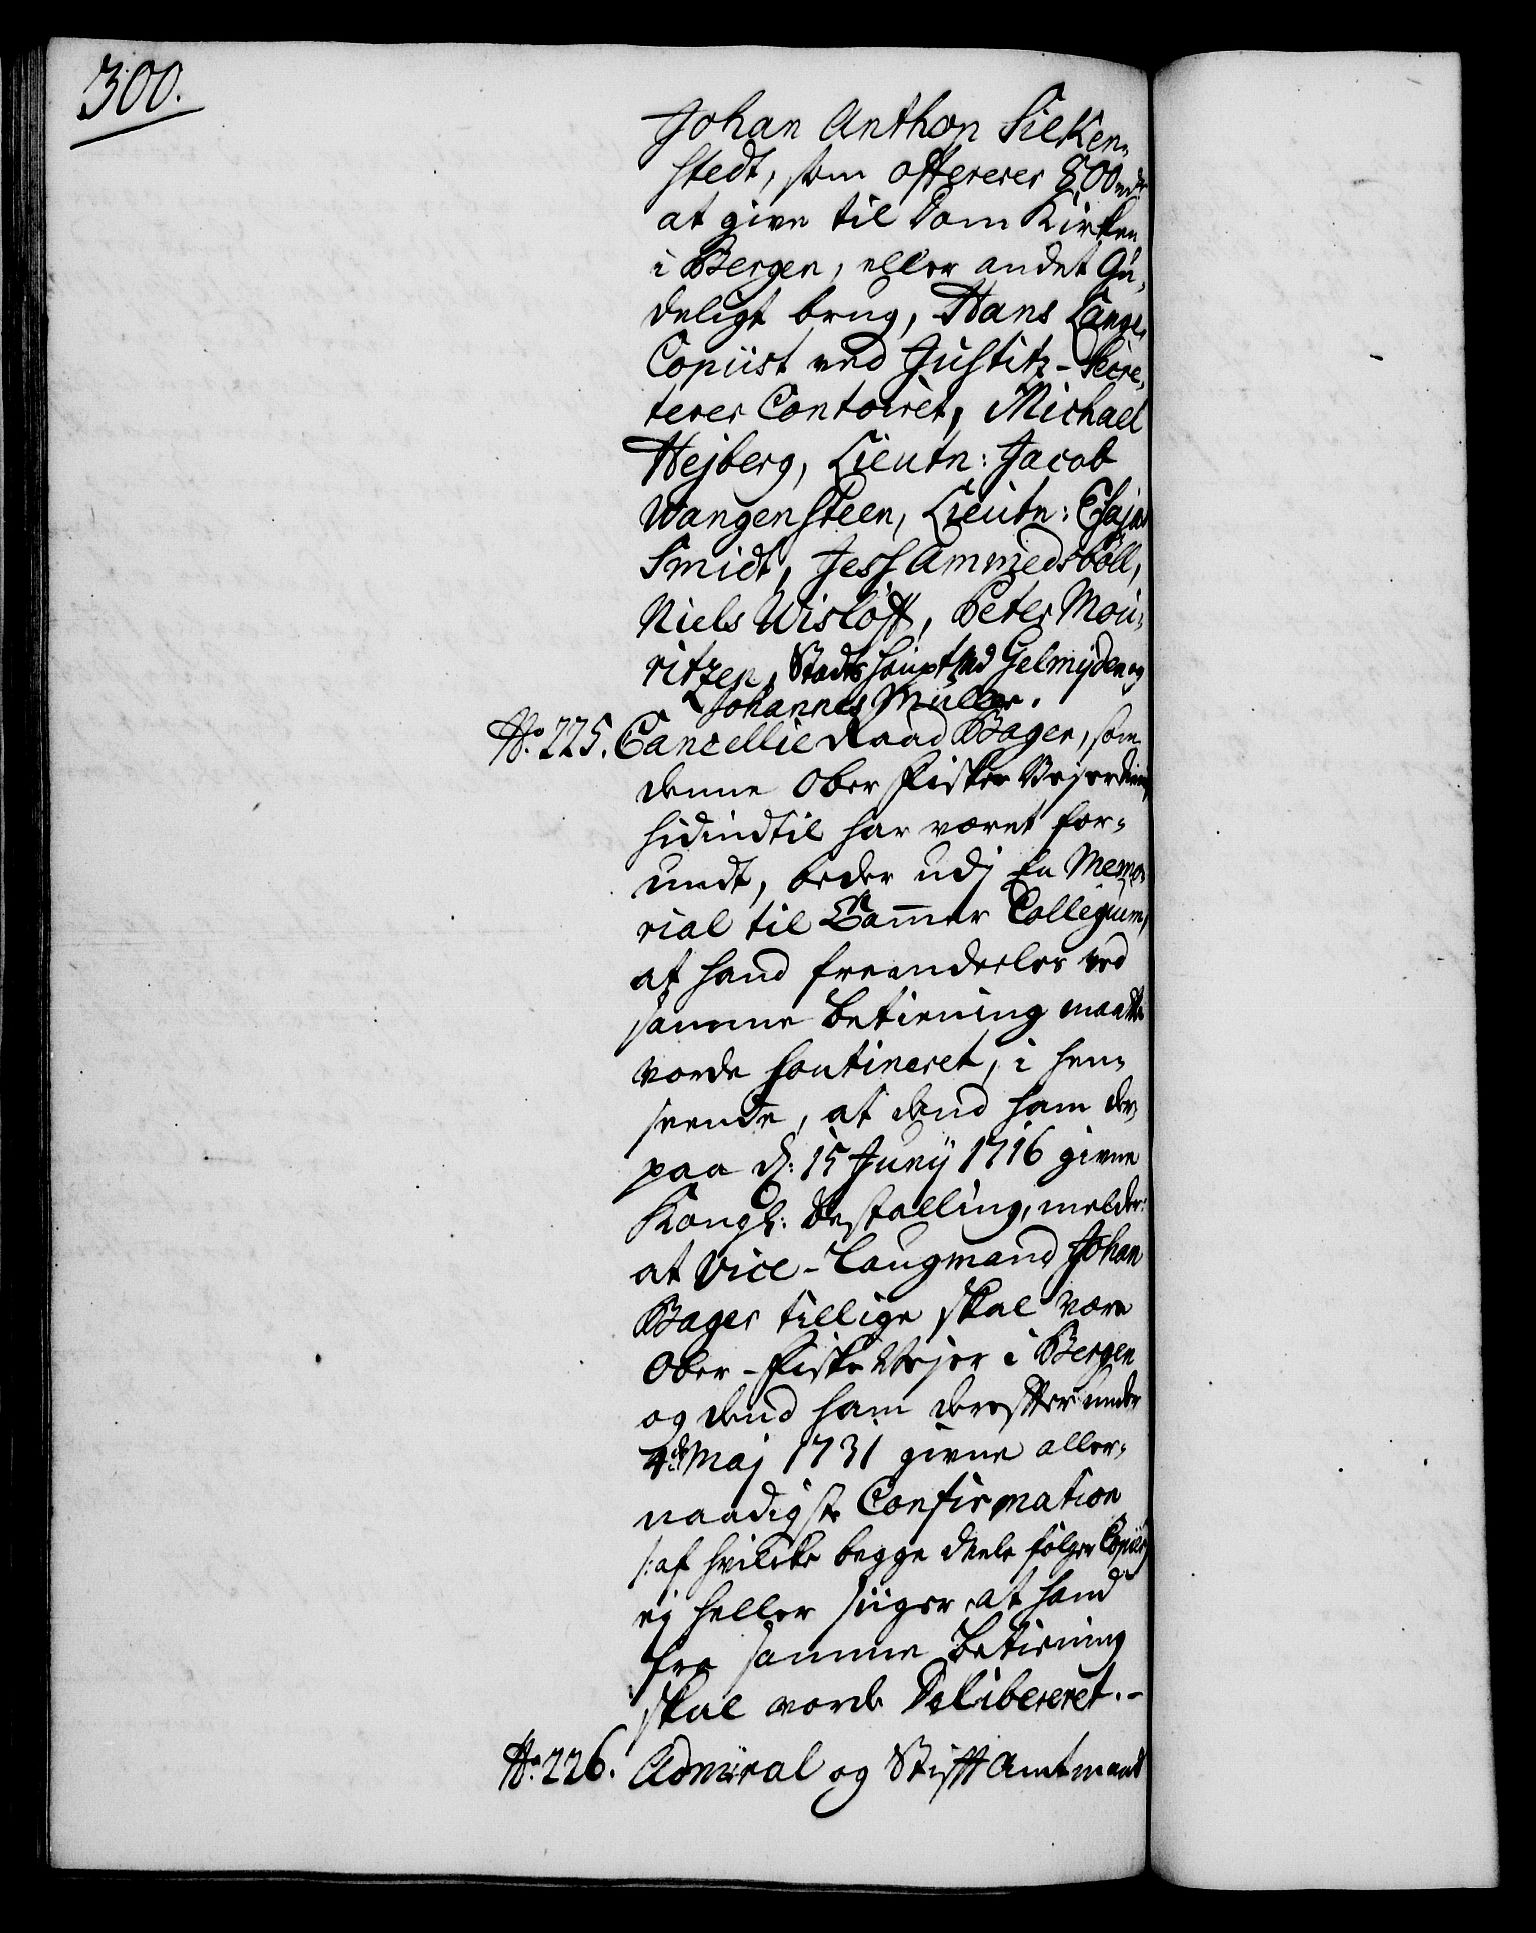 300.
Johan Anthon Sielken-
stedt, som offererer 800 rdr
at give til Dom Kirken
i Bergen, eller andet Gu-
deligt brug, Hans Lange,
Copiist ved Justitz-Secre-
terer Contoiret, Michael
Hejberg, Lieutn: Jacob
Wangensteen, Lieutn: Esajas
Smidt, Jess Ammedsböll,
Niels Wislöff, Peter Mou-
ritzen, Stadts Hauptmd Gelmyden og
Johannes Müller.
No. 225. Cancellie Raad Bager, som
denne Ober Fiske Vejer
hidindtil har været for-
undt, beder udj En Memo-
rial til Cammer Collegium,
at hand fremdeeles ved
samme betiening maatte
vorde Contineret, i hen-
seende, at dend ham der
paa d: 15 Junij 1716 givne
Kongl: Bestalling, melder:
at Vice-Laugmand Johan
Bager tillige skal være
Ober-Fiske Vejer i Bergen
og dend ham derefter under
4de Maj 1731 givne aller-
naadigste Confirmation
/: af hvilcke begge deele følger Copier
ej heller siiger, at hand
fra samme betiening
skal vorde Delibereret.-
No. 226. Admiral og Stifft Amtmand